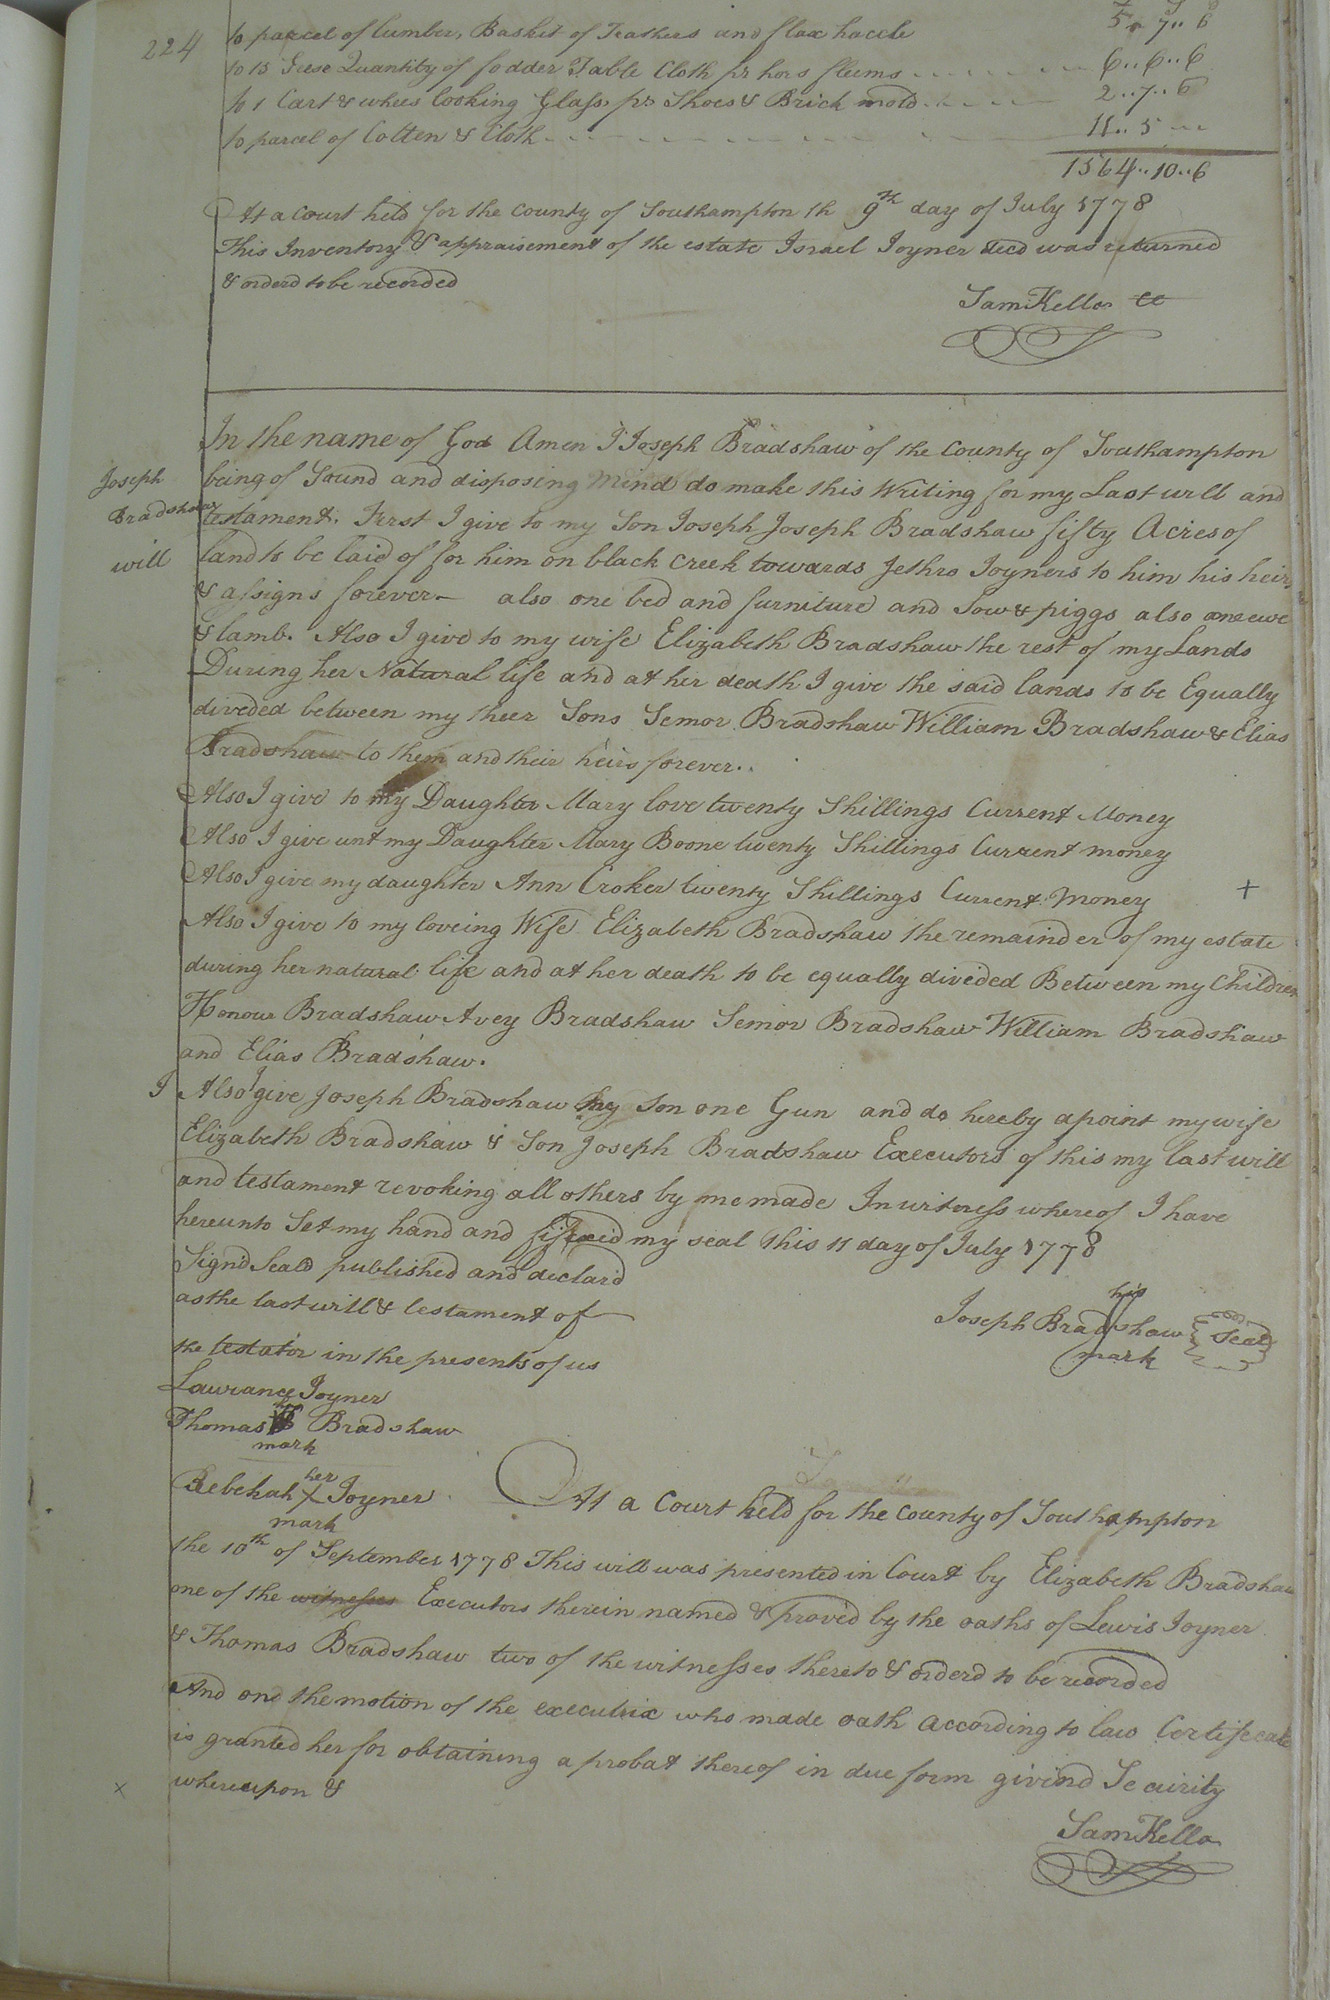 224
to parcel of lumber, Basket of Feathers and flax hacele 5 .. 7 .. 6
to 15 Geese Quantity of fodder Table Cloth pr hors fleems 6 .. 6 .. 6
to 1 Cart & whees looking Glass pr Shoes & Brick mold 2 .. 7 .. 6
to parcel of Cotten & Cloth 11 .. 5 --
1564 .. 10 .. 6
At a Court held for the County of Southampton th 9th day of July 1778
This Inventory & appraisement of the estate Israel Joyner decd was returned
& orderd to be recorded
Sam Kello CC
Joseph
Bradshaw
will
In the name of God Amen I Joseph Bradshaw of the County of Southampton
being of Sound and disposing Mind do make this Writing for my Last will and
testament. First I give to my Son Joseph Joseph Bradshaw fifty Acres of
land to be laid of for him on black Creek towards Jethro Joyners to him his heirs
& assigns forever - also one bed and furniture and Sow & piggs also one ewe
& lamb. Also I give to my wife Elizabeth Bradshaw the rest of my Lands
During her Natural life and at her death I give the said lands to be Equally
diveded between my theer Sons Semor Bradshaw William Bradshaw & Elias
Bradshaw to them and their heirs forever..
Also I give to my Daughter Mary love twenty Shillings Current Money
Also I give unt my Daughter Mary Boone twenty Shillings Current money
Also I give my daughter Ann Croker twenty Shillings Current Money +
Also I give to my loveing Wife Elizabeth Bradshaw the remainder of my estate
during her natural life and at her death to be equally divided Between my Children
Honour Bradshaw Avey Bradshaw Semor Bradshaw William Bradshaw
and Elias Bradshaw.
I Also I give Joseph Bradshaw my Son one Gun and do hereby apoint my wife
Elizabeth Bradshaw & Son Joseph Bradshaw Executors of this my last will
and testament revoking all others by me made In witness whereof I have
hereunto Set my hand and fifxed my seal this 11 day of July 1778
Signd Seald published and declard
as the last will & testament of
the testator in the presents of us
his
Joseph Bradshaw Seal
mark
Lawrance Joyner
Thomas Bradshaw
mark
her
Rebekah X Joyner
mark
At a Court held for the County of Southampton
the 10th of September 1778 This will was presented in Court by Elizabeth Bradshaw
one of the witnesses Executors therein named & proved by the oaths of Lewis Joyner
& Thomas Bradshaw two of the witnesses thereto & orderd to be recorded
And ond the motion of the executrix who made oath according to law Certifecate
is granted her for obtaining a probat thereof in due form givind Security
whereupon &
x
Sam Kello